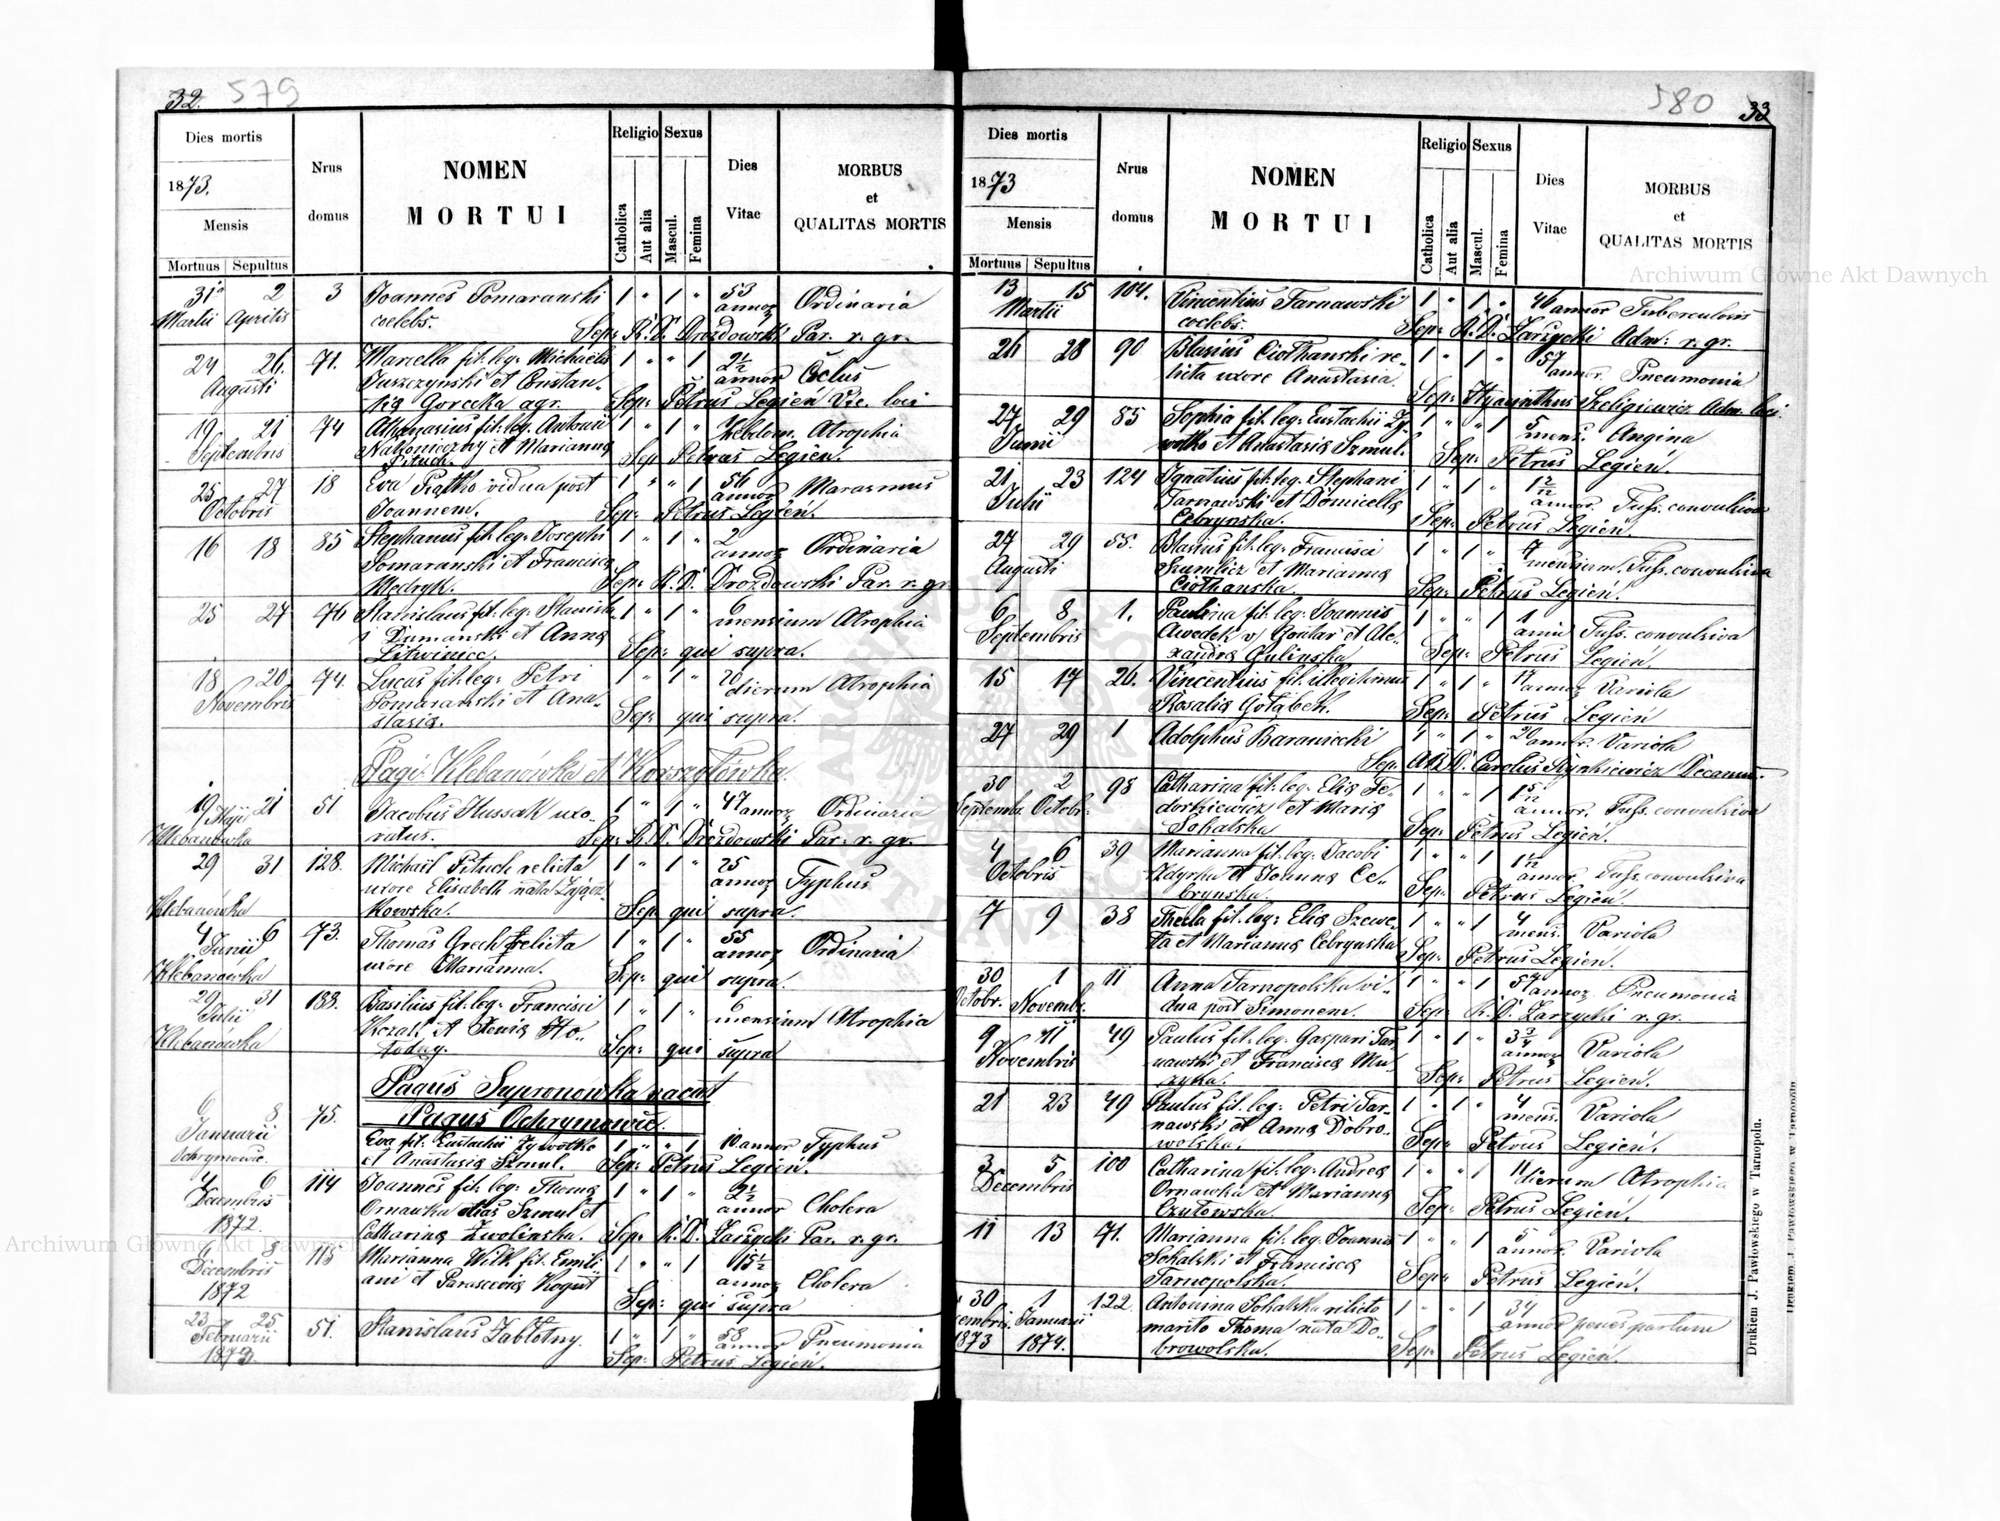 32. 579
Dies mortis
1873.
Mensis
Mortuus Sepultus
Nrus domus
NOMEN
MORTUI
Religio Sexus
Catholica Aut alia Mascul. Femina
Dies Vitae
MORBUS
et
QUALITAS MORTIS
31 2 3 Joannes Pomaranski 1 " 1 " 53 annor Ordinaria
Martii Aprilis coelebs. Sep: R. D. Drozdowski Par. r. gr.
24 26. 71. Marcella fil. leg. Michaelis 1 " " 1 2½ annor
Augusti Juszczynski et Constan-
Gorecka agr. Sep: Petrus Legien Vic. loci
19 21 74 Athanasius fil. leg. Antonii 1 " 1 " Atrophia
Septembris Nakonieczny et Marianna
Pituch. Sep Petrus Legień.
25 27 18 Eva vidua post 1 " " 1 56 annor Marasmus
Octobris Joannem. Sep: Petrus Legień.
16 18 85 Stephanus fil. leg. Josephi 1 " 1 " 2 annor Ordinaria
Pomaranski et Francisca
Medryk. Sep: R. D. Drozdowski Par. r. gr.
25 27 76 Stanislaus fil. leg. Stanisla- 1 " 1 " 6 mensium Atrophia
i Dumanski et Anna
Litwiniec. Sep: qui supra.
18 20 74. Lucas fil. leg. Petri 1 " 1 " 20 dierum Atrophia
Novembris Pomaranski et Ana-
stasia. Sep: qui supra.
Pagi Klebanówka et Korszyłówka.
19 21 51 Jacobus Hussak uxo- 1 " 1 " 47 annor Ordinaria
Maji
Klebanówka ratus. Sep: R. D. Drozdowski Par. r. gr.
29 31 128. Michael Pituch relicta 1 " 1 " 25 annor Typhus
uxore Elisabeth nata Zając-
Klebanówka kowska. Sep qui supra.
4 Junii 6 73. Thomas Grech relicta 1 " 1 " 55 annor Ordinaria
Klebanówka uxore Marianna. Sep: qui supra.
29 31 188. Basilius fil. leg. Francisci 1 " 1 " 6 mensium Atrophia
Julii Kozak et Xenia Ho-
Klebanówka łodny. Sep: qui supra
Pagus Supronówka vacat
Pagus Ochrymowie.
6 8 75. Eva fil. Eustachii Zywotko 1 " " 1 10 annor Typhus
Januarii
Ochrymowie. et Anastasia Szmul. Sep: Petrus Legień.
4 6 114 Joannes fil. leg. Thoma 1 " 1 " 2½ annor Cholera
Decembris Ornawka alias Szmul et
1872. Catharina Zwolinska. Sep: R. D. Zarzycki Par. r. gr.
6 8 118 Marianna Wilk fil. Emili- 1 " " 1 annor Cholera
Decembris ani et Parascevia Kogut
1872 Sep: qui supra
23 25 51. Stanislaus Zabłotny. 1 " 1 " 58 annor Pneumonia
Februarii
1873. Sep: Petrus Legień.
580 33
Dies mortis
1873
Mensis
Mortuus Sepultus
Nrus domus
NOMEN
MORTUI
Religio Sexus
Catholica Aut alia Mascul. Femina
Dies Vitae
MORBUS
et
QUALITAS MORTIS
13 15 104. Vincentius Tarnawski 1 " 1 " 46 annor Tuberculosis
Martii coelebs. Sep: R. D. Zarzycki Adm: r. gr.
26 28 90 Blasius Ciothanski re- 1 " 1 " 57 annor. Pneumonia
licta uxore Anastasia. Sep: Hyacinthus Szeligiewicz Adm. loci
27 29 85 Sophia fil. leg. Eustachii Zy- 1 " " 1 5 mens. Angina
Junii wotko et Anastasia Szmul. Sep: Petrus Legień.
21 23 124 Ignatius fil. leg. Stephani 1 " 1 " 1 annor. Tuss. convulsiva
Julii Tarnawski et Domicella
Cebrynska. Sep: Petrus Legień.
27 29 55. Blasius fil. leg. Francisci 1 " 1 " mensium Tuss. convulsiva
Augusti Szumlicz et Marianna
Ciothanska. Sep: Petrus Legień.
6 8 1. Paulina fil. leg. Joannis 1 " " 1 1 anni Tuss. convulsiva
Septembris Awedek v/ Gontar et Ale-
xandra Gulinska. Sep: Petrus Legień.
15 17 26. Vincentius fil. illegitimus 1 " 1 " annor Variola
Rosalia Gołąbek. Sep: Petrus Legień
27 29 1 Adolphus Baraniecki 1 " 1 " 20 annor. Variola
Sep. A. R. D. Carolus Decanus.
30 2 98 Catharina fil. leg. Elia Fe- 1 " " 1 1 annor. Tuss. convulsiva
Septemb. Octobr. dorkiewicz et Maria
Sokalska Sep: Petrus Legień.
4 6 39 Marianna fil. leg. Jacobi 1 " " 1 1 annor. Tuss. convulsiva
Octobris Zdyrka et Joanna Ce-
brynska. Sep: Petrus Legień.
7 9 38 Thecla fil. leg. Elia Szewe- 1 " " 1 4 mens. Variola
ta et Marianna Cebrynska Sep: Petrus Legień.
30 1 11 Anna Tarnopolska vi- 1 " " 1 annor Pneumonia
Octobr. Novemb. dua post Simonem. Sep: R. D. Zarzycki r. gr.
9 11 49 Paulus fil. leg. Gaspari Tar- 1 " 1 " annor Variola
Novembris nawski et Francisca Mu-
zyka. Sep: Petrus Legień.
21 23 49 Paulus fil. leg. Petri Tar- 1 " 1 " 4 mens. Variola
nawski et Anna Dobro-
wolska. Sep: Petrus Legień.
3 5 100 Catharina fil. leg. Andrea 1 " " 1 11 dierum Atrophia
Decembris Ornawka et Marianna
Czytowska. Sep: Petrus Legień.
11 13 71. Marianna fil. leg. Joannis 1 " " 1 5 annor. Variola
Sokalski et Francisca
Tarnopolska. Sep: Petrus Legień.
30 1 122 Antonina Sokalska relicto 1 " " 1 34 annor penes partum
embris Januarii marito Thoma nata Do-
1873 1874. browolska. Sep: Petrus Legień.
Drukiem J. Pawłowskiego w Tarnopolu.
Drukiem J. Pawłowskiego w Tarnopolu
Archiwum Główne Akt Dawnych
Archiwum Główne Akt Dawnych